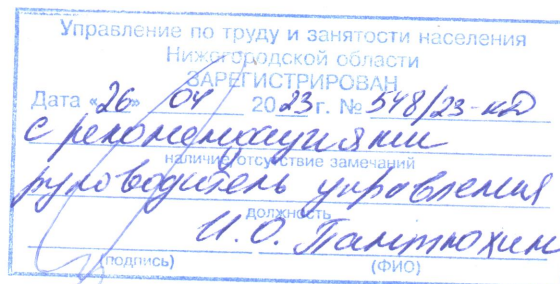 Управление по труду и занятости населения
Нижегородской области
ЗАРЕГИСТРИРОВАН
Дата «26» 04 2023 г. № 548/23-кД
с рекомендациями
наличие/отсутствие замечаний
руководитель управления
должность
И.О. Пантюхин
(подпись) (ФИО)